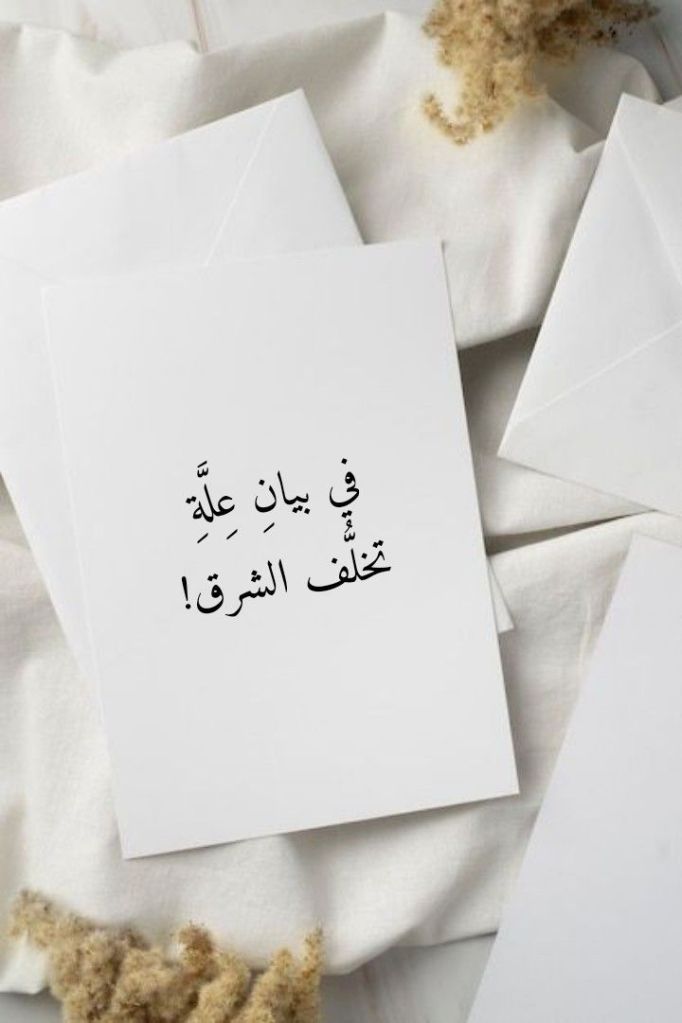 في بيانِ عِلَّةِ
تخلُّف الشرق!